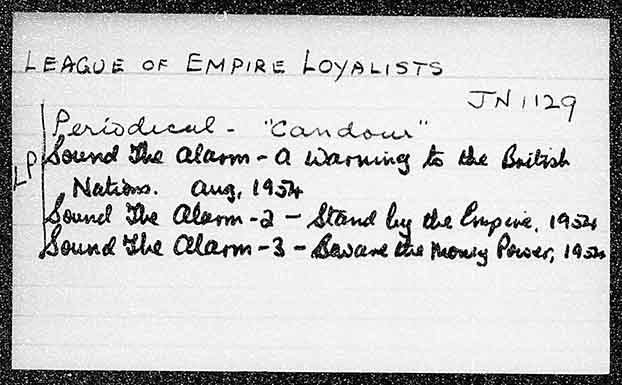 LEAGUE OF EMPIRE LOYALISTS
JN 1129
Periodical - "Candour"
LP
Sound The Alarm - A Warning to the British
Nations. Aug, 1954
Sound The Alarm - 2 - Stand by the Empire, 1954
Sound The Alarm - 3 - Beware the Money Power, 1954